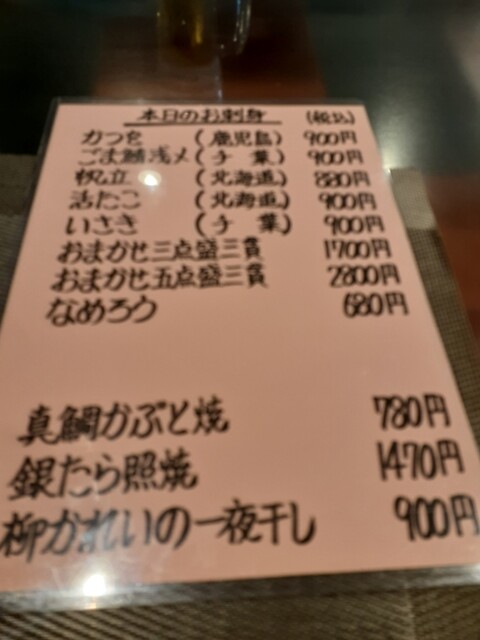 本日のお刺身 (税込)
かつを (鹿児島) 900円
ごま鯖浅〆 (千葉) 900円
帆立 (北海道) 880円
活たこ (北海道) 900円
いさき (千葉) 900円
おまかせ三点盛三貫 1700円
おまかせ五点盛三貫 2800円
なめろう 680円
真鯛かぶと焼 780円
銀たら照焼 1470円
柳かれいの一夜干し 900円